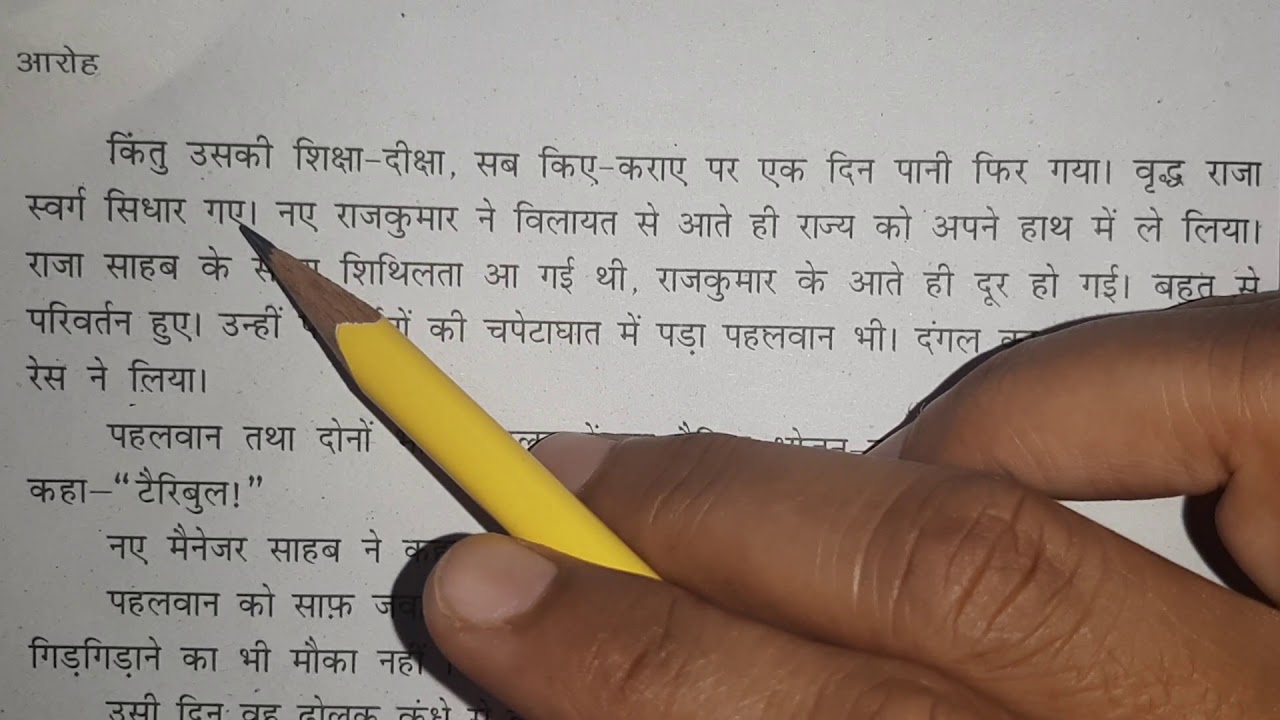 आरोह
किंतु उसकी शिक्षा-दीक्षा, सब किए-कराए पर एक दिन पानी फिर गया। वृद्ध राजा
स्वर्ग सिधार गए। नए राजकुमार ने विलायत से आते ही राज्य को अपने हाथ में ले लिया।
राजा साहब के शिथिलता आ गई थी, राजकुमार के आते ही दूर हो गई। बहुत से
परिवर्तन हुए। उन्हीं की चपेटाघात में पड़ा पहलवान भी। दंगल
रेस ने लिया।
पहलवान तथा दोनों
कहा–“टैरिबुल!”
नए मैनेजर साहब ने
पहलवान को साफ़
गिड़गिड़ाने का भी मौका नहीं
उसी दिन वह ढोलक कंधे से